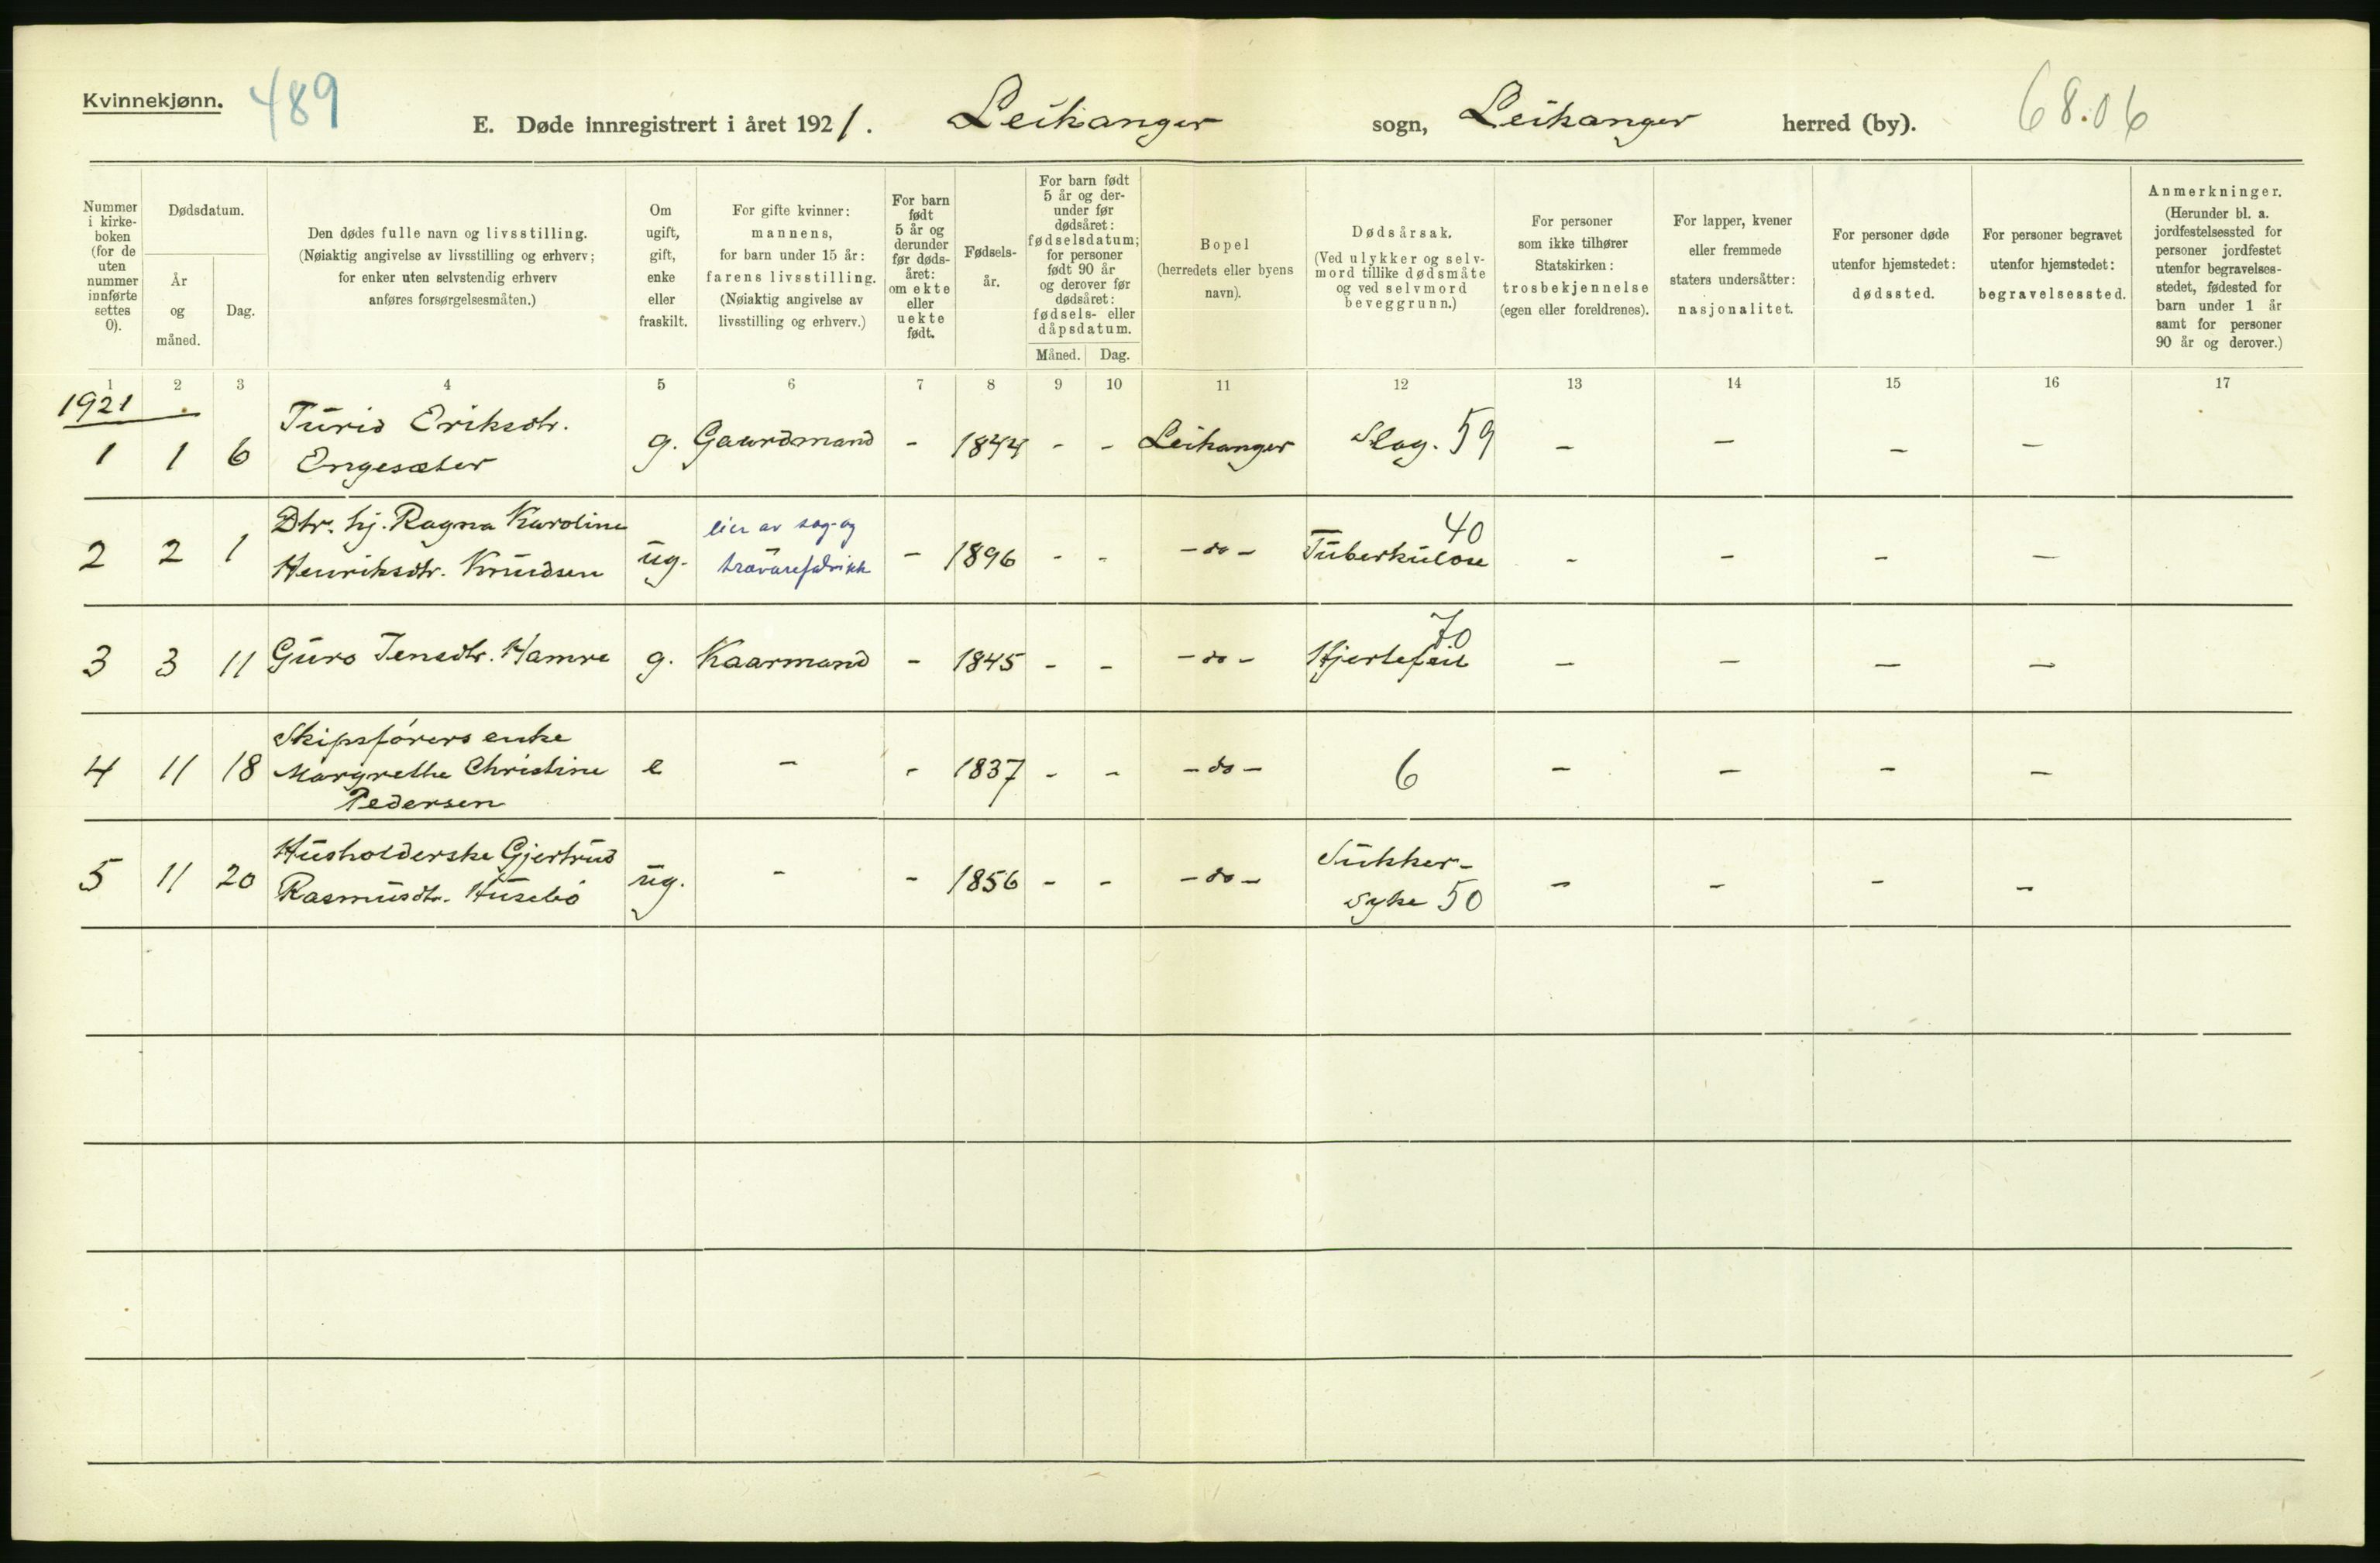 Kvinnekjønn. 489
E. Døde innregistrert i året 1921. Leikanger sogn, Leikanger herred (by). 68.06
Nummer
i kirke-
boken
(for de
uten
nummer
innførte
settes
0).
Dødsdatum.
År
og
måned.
Dag.
Den dødes fulle navn og livsstilling.
(Nøiaktig angivelse av livsstilling og erhverv;
for enker uten selvstendig erhverv
anføres forsørgelsesmåten.)
Om
ugift,
gift,
enke
eller
fraskilt.
For gifte kvinner:
mannens,
for barn under 15 år:
farens livsstilling.
(Nøiaktig angivelse av
livsstilling og erhverv.)
For barn
født
5 år og
derunder
før døds-
året:
om ekte
eller
uekte
født.
Fødsels-
år.
For barn født
5 år og der-
under før
dødsåret:
fødselsdatum;
for personer
født 90 år
og derover før
dødsåret:
fødsels- eller
dåpsdatum.
Måned. Dag.
Bopel
(herredets eller byens
navn).
Dødsårsak.
(Ved ulykker og selv-
mord tillike dødsmåte
og ved selvmord
beveggrunn.)
For personer
som ikke tilhører
Statskirken:
trosbekjennelse
(egen eller foreldrenes).
For lapper, kvener
eller fremmede
staters undersåtter:
nasjonalitet.
For personer døde
utenfor hjemstedet:
dødssted.
For personer begravet
utenfor hjemstedet:
begravelsessted.
Anmerkninger.
(Herunder bl. a.
jordfestelsessted for
personer jordfestet
utenfor begravelses-
stedet, fødested for
barn under 1 år
samt for personer
90 år og derover.)
1 2 3 4 5 6 7 8 9 10 11 12 13 14 15 16 17
1921
Turid Eriksdtr.
1 1 6 Engesæter g. Gaardmand - 1844 - - Leikanger Slag. 59 - - - -
Dtr. hj. Ragna Karoline eier av sag- og 40
2 2 1 Henriksdtr. Knudsen ug. trævarefabrikk - 1896 - - -do- Tuberkulose - - - -
70
3 3 11 Guro Jensdtr. Hamre g. Kaarmand - 1845 - - -do- Hjertefeil - - - -
Skipsførers enke
4 11 18 Margrethe Christine e - - 1837 - - -do- 6 - - - -
Pedersen
Husholderske Gjertrud Sukker-
5 11 20 Rasmusdtr. Husebø ug. - - 1856 - - -do- syke 50 - - - -